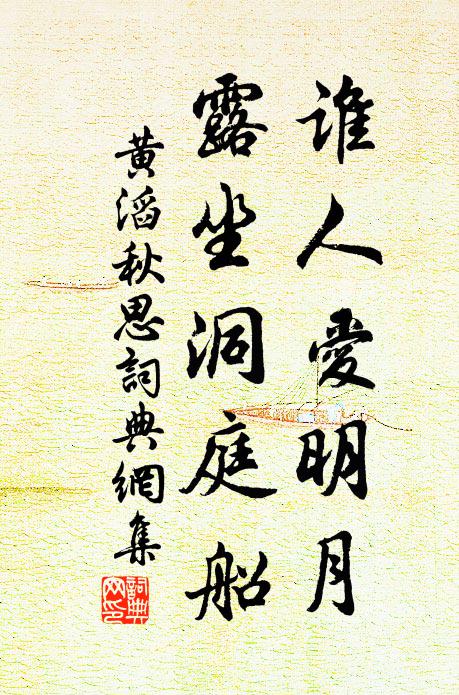 誰人愛明月
露坐洞庭船
黃滔秋思詞典網集
詞典
网印